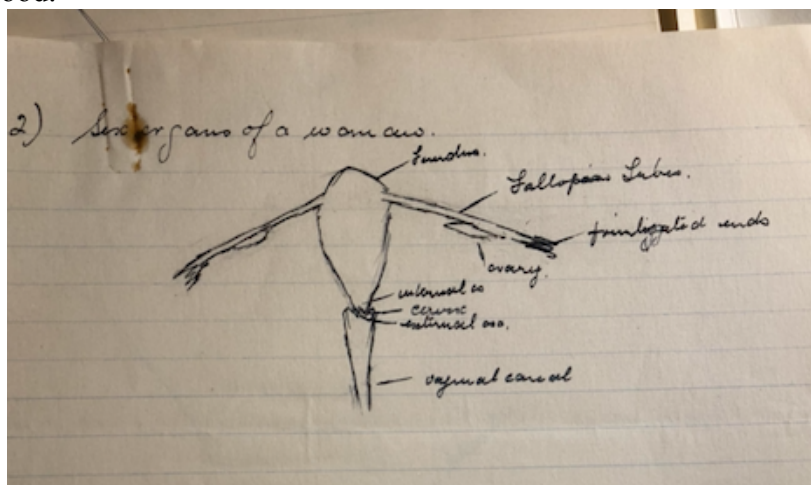 ood.
2) Sex organs of a woman.
Fundus.
Fallopian Tubes.
fimbriated ends
ovary.
internal os
cervix
external os.
vaginal canal